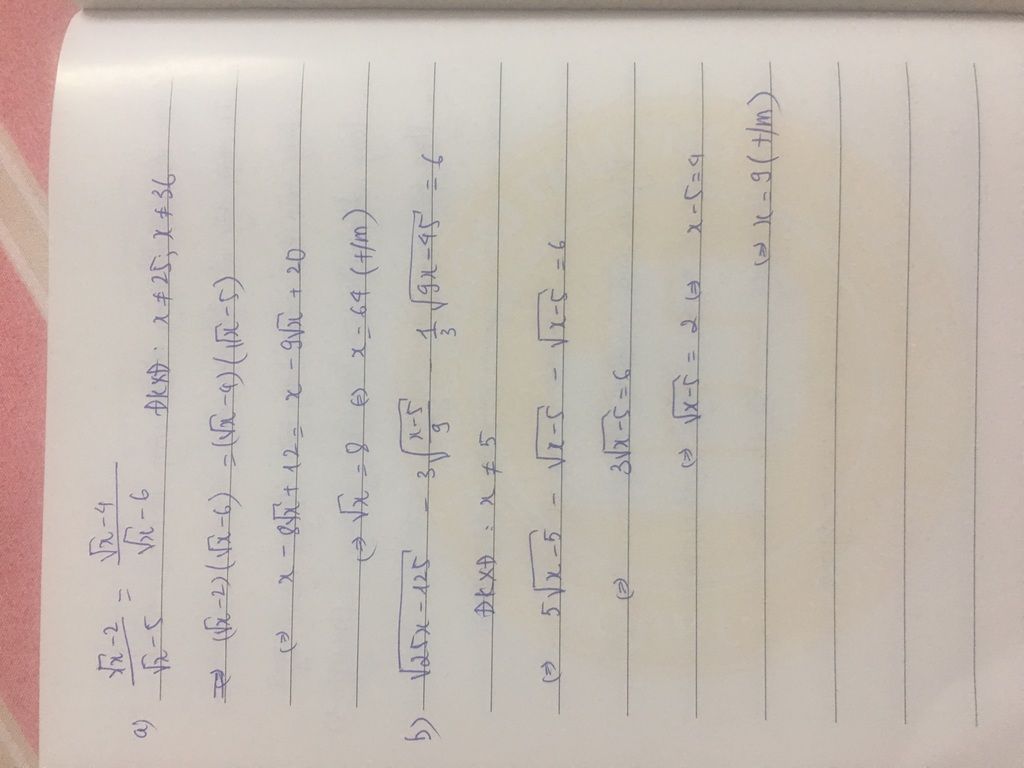 a) (√x-2)/(√x-5) = (√x-4)/(√x-6)
ĐKXĐ: x≠25; x≠36
⇒ (√x-2)(√x-6) = (√x-4)(√x-5)
(⇒) x-8√x+12 = x-9√x+20
(⇒) √x = 8 (⇒) x = 64 (t/m)
b) √(25x-125) - 3√((x-5)/9) - 1/3 √(9x-45) = 6
ĐKXĐ: x ≠ 5
(⇒) 5√(x-5) - √(x-5) - √(x-5) = 6
(⇒) 3√(x-5) = 6
(⇒) √(x-5) = 2 (⇒) x-5=4
(⇒) x = 9 (t/m)